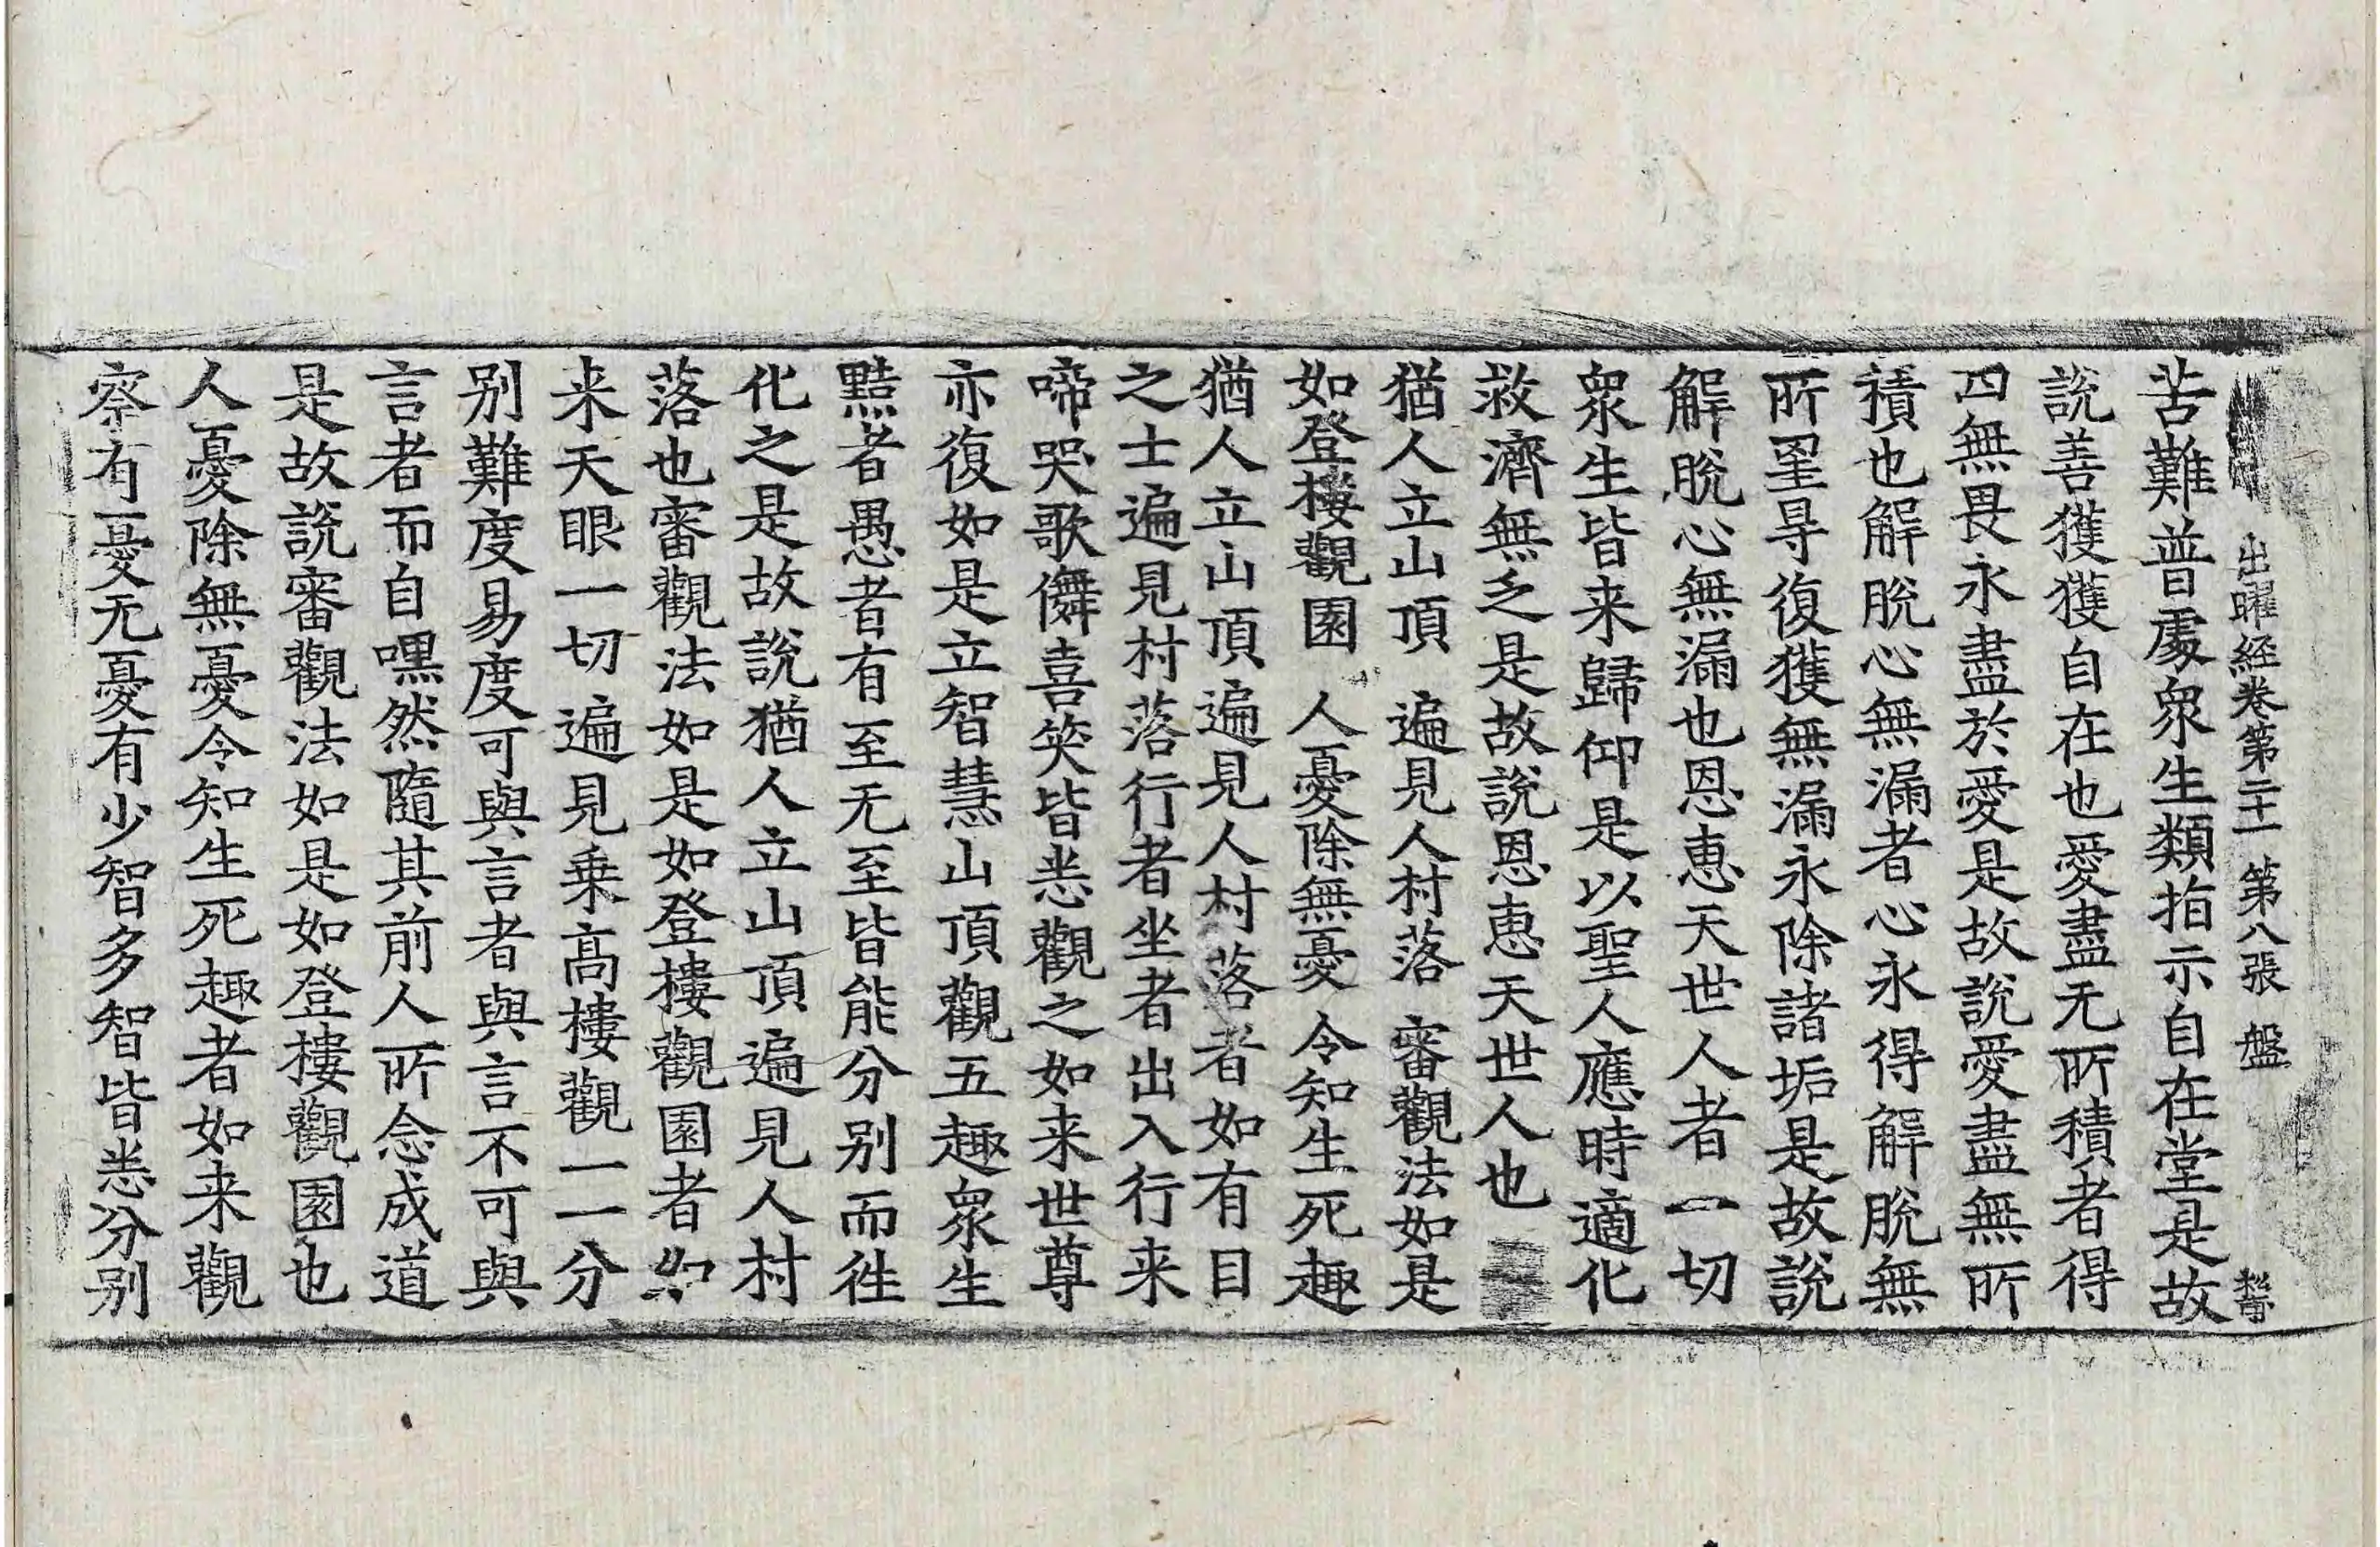 出曜経卷第二十一 第八張 盤
苦難普處衆生類指示自在堂是故
說善獲獲自在也愛盡无所積者得
四無畏永盡於愛是故說愛盡無所
積也解脫心無漏者心永得解脫無
所罣导復獲無漏永除諸垢是故說
解脫心無漏也恩恵天世人者一切
衆生皆来歸仰是以聖人應時適化
救濟無乏是故說恩恵天世人也
猶人立山頂 遍見人村落 審觀法如是
如登樓觀園 人憂除無憂 令知生死趣
猶人立山頂遍見人村落者如有目
之士遍見村落行者坐者出入行来
啼哭歌儛喜笑皆悉觀之如来世尊
亦復如是立智慧山頂觀五趣衆生
黠者愚者有至无至皆能分别而往
化之是故說猶人立山頂遍見人村
落也審觀法如是如登樓觀園者如
来天眼一切遍見乗高樓觀一一分
别難度易度可與言者與言不可與
言者而自嘿然隨其前人所念成道
是故說審觀法如是如登樓觀園也
人憂除無憂令知生死趣者如来觀
察有憂无憂有少智多智皆悉分别